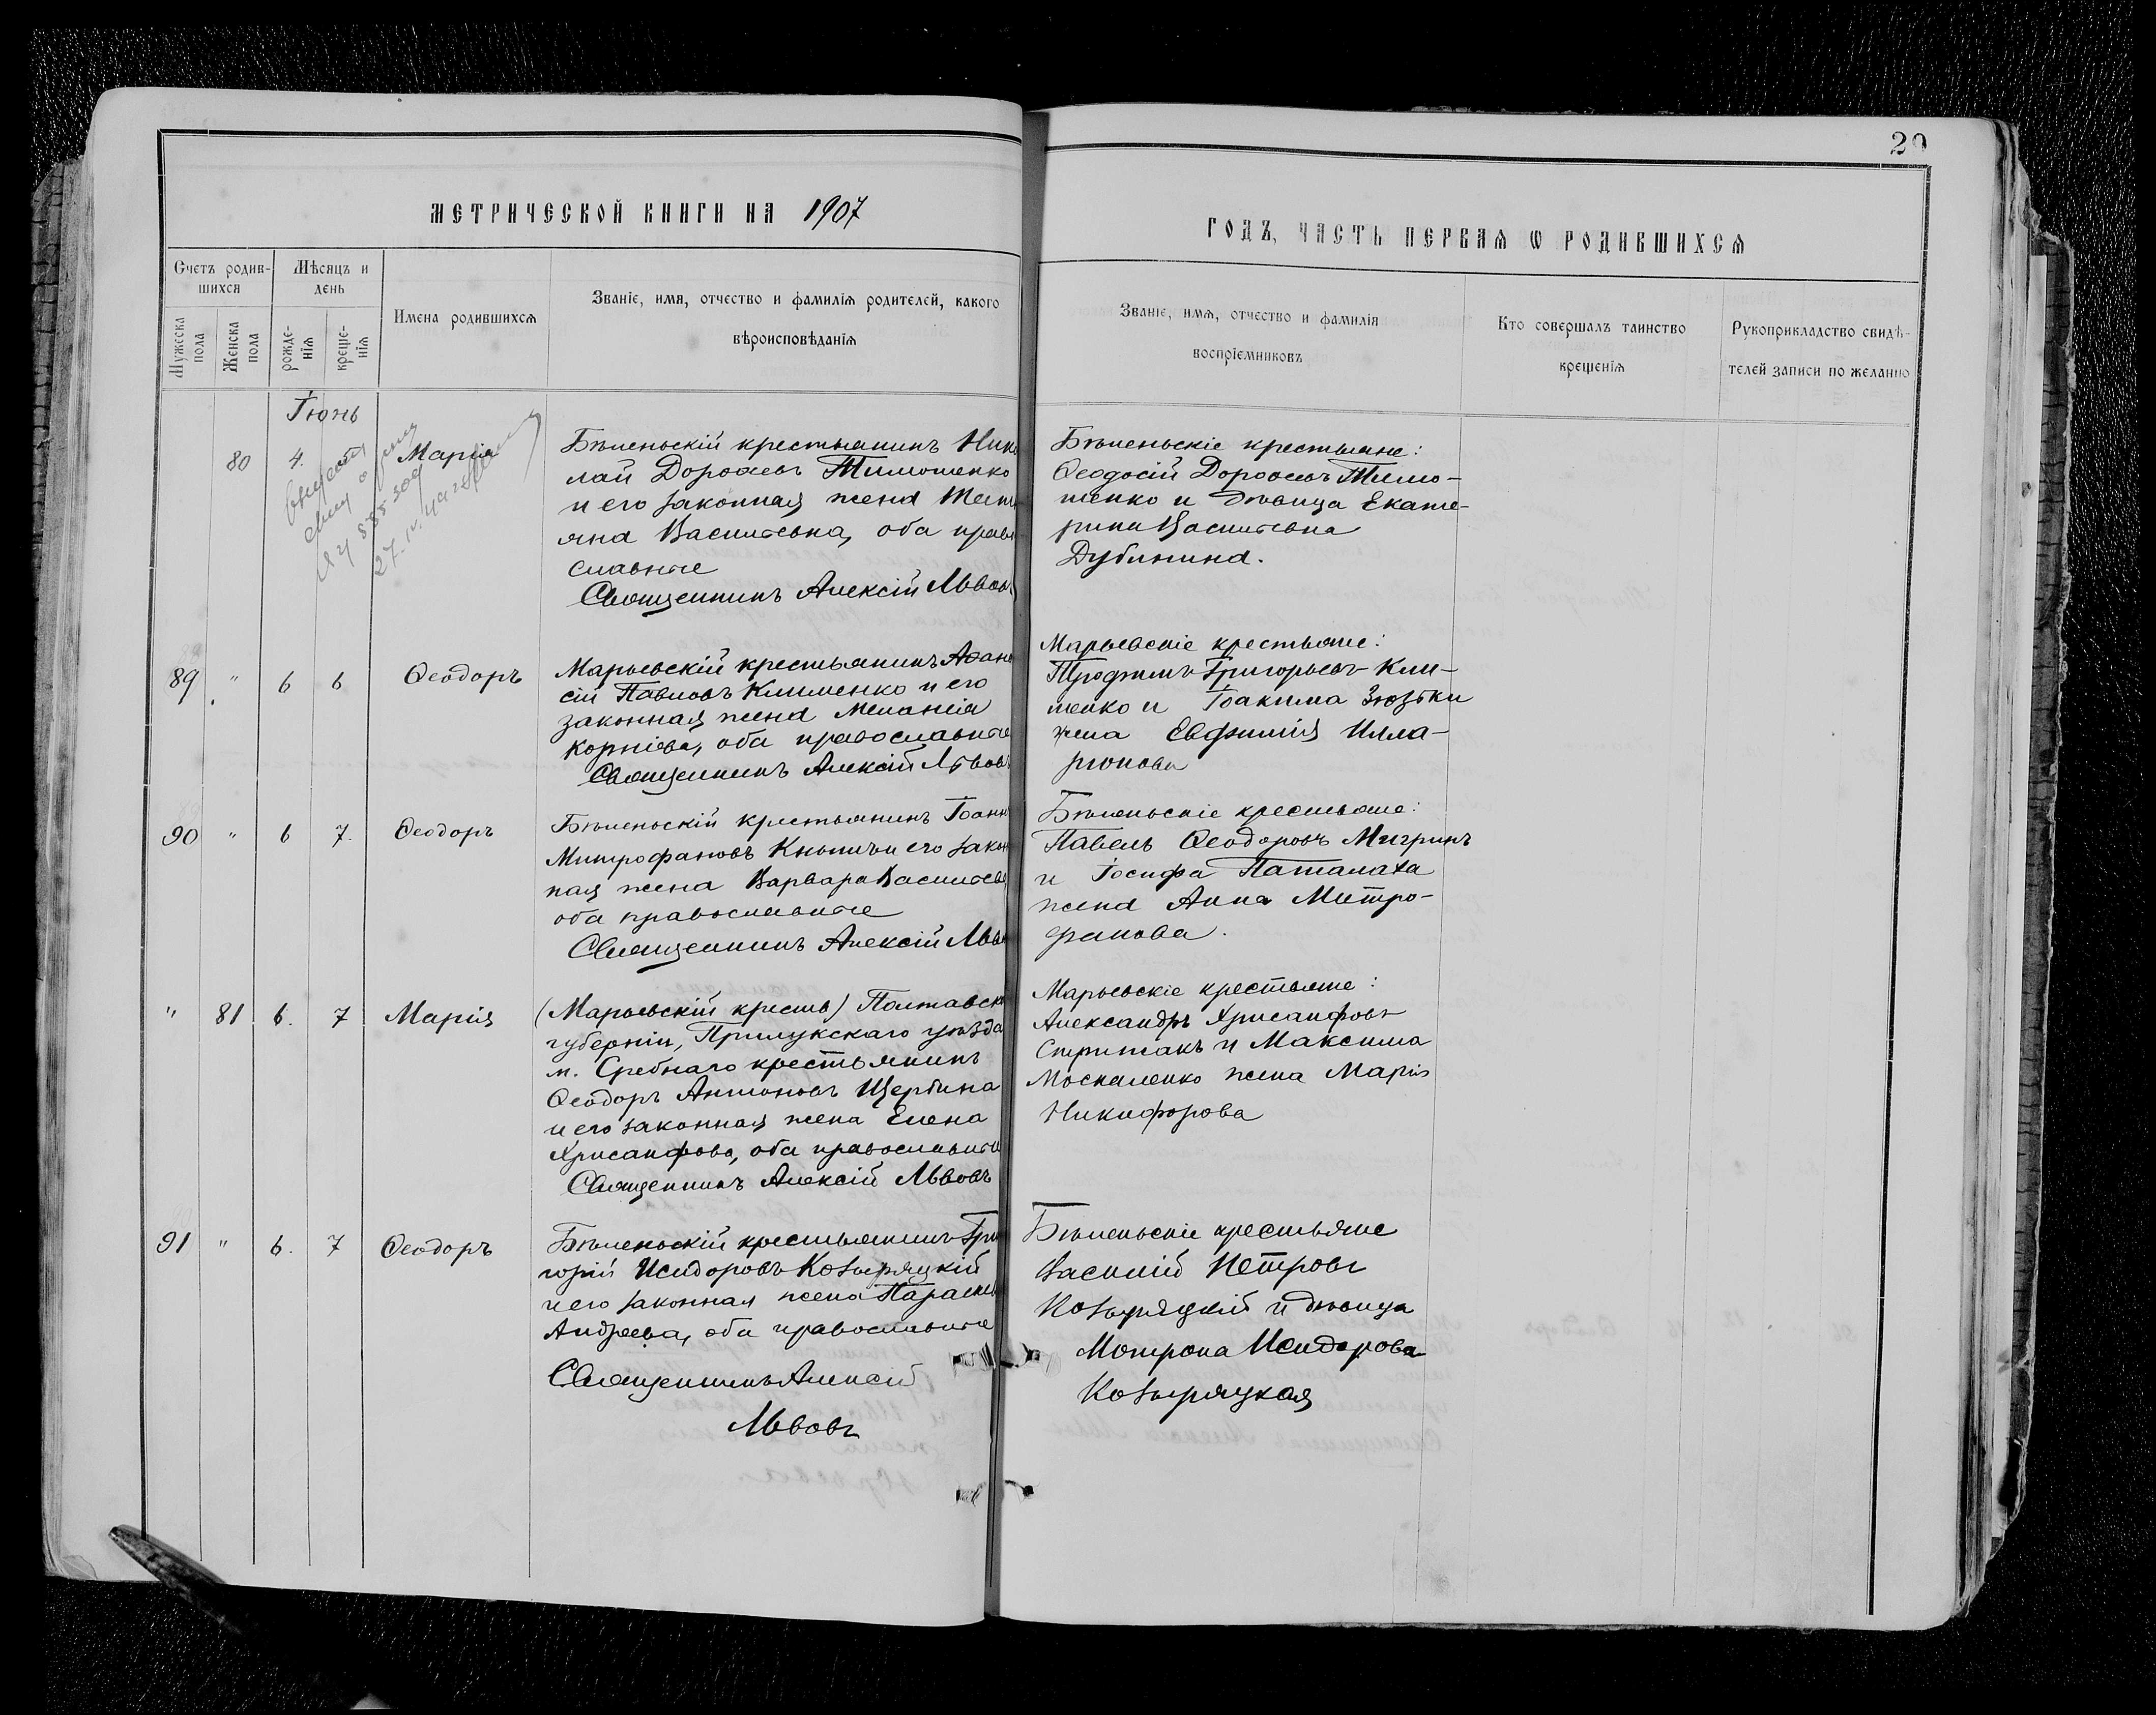 29
МЕТРИЧЕСКОЙ КНИГИ НА 1907
ГОДЪ, ЧАСТЬ ПЕРВАЯ Ѡ РОДИВШИХСЯ
Счетъ родив-
шихся
Мужеска
пола
Женска
пола
Мѣсяцъ и
день
рожде-
нія
креще-
нія
Имена родившихся
Званіе, имя, отчество и фамилія родителей, какого
вѣроисповѣданія
Званіе, имя, отчество и фамилія
воспріемниковъ
Кто совершалъ таинство
крещенія
Рукоприкладство свидѣ-
телей записи по желанію
Іюнь
80 4. Марія
Бѣленьскій крестьянинъ Нико
лай Дороѳеевъ Тимошенко
и его законная жена Тать
яна Васильевна, оба право
славные
Священникъ Алексій Львовъ
Бѣленьскіе крестьяне:
Ѳеодосій Дороѳеевъ Тимо-
шенко и дѣвица Екате-
рина Васильевна
Дублянина.
89 " 6 6 Ѳеодоръ
Марьевскій крестьянинъ Аѳана
сій Павловъ Клименко и его
законная жена Меланія
Корнієва, оба православные
Священникъ Алексій Львовъ
Марьевскіе крестьяне:
Трофимъ Григорьевъ Кли-
менко и Іоакима Зюзьки
жена Евфимія Илла-
ріонова
90 " 6 7. Ѳеодоръ
Бѣленьскій крестьянинъ Іоаннъ
Митрофановъ Кнышъ и его закон
ная жена Варвара Васильева
оба православные
Священникъ Алексій Львовъ
Бѣленьскіе крестьяне:
Павелъ Ѳеодоровъ Мигринъ
и Іосифа Паталаха
жена Анна Митро-
фанова.
" 81 6. 7 Марія
(Марьевскій крест.) Полтавской
губерніи, Прилукскаго уѣзда
м. Сребнаго крестьянинъ
Ѳеодоръ Антоновъ Щербина
и его законная жена Елена
Хрисанфова, оба православные
Священникъ Алексій Львовъ
Марьевскіе крестьяне:
Александръ Хрисанфовъ
Спритакъ и Максима
Москаленко жена Марія
Никифорова
91 " 6. 7 Ѳеодоръ
Бѣленьскій крестьянинъ Гри
горій Исидоровъ Козыряцкій
и его законная жена Параскева
Андреева, оба православные
Священникъ Алексій
Львовъ
Бѣленьскіе крестьяне
Василій Петровъ
Козыряцкій и дѣвица
Мотрона Исидорова
Козыряцкая